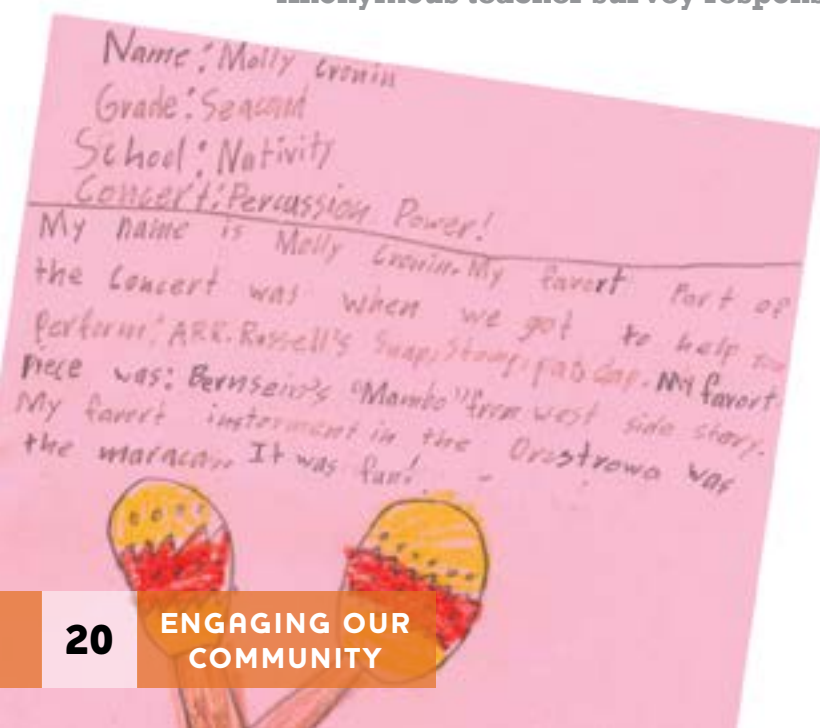 Anonymous teacher survey respons
Name: Molly Cronin
Grade: Seacond
School: Nativity
Concert: Percussion Power!
My name is Molly Cronin. My favort Part of
the Concert was when we got to help
perform: ARR. Russell's Snap, Stomp, pat, clap. My favort
piece was: Bernsein's "Mambo" from west side story.
My favort insterment in the was
the maracas. It was fun!
20
ENGAGING OUR
COMMUNITY